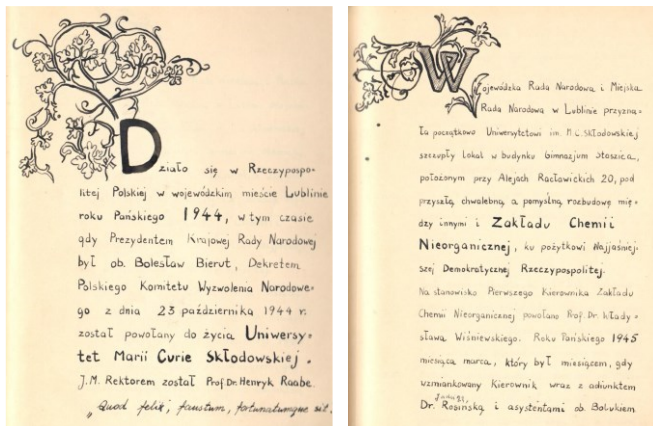 Działo się w Rzeczypospo-
litej Polskiej w wojewódzkim mieście Lublinie
roku Pańskiego 1944, w tym czasie
gdy Prezydentem Krajowej Rady Narodowej
był ob. Bolesław Bierut, Dekretem
Polskiego Komitetu Wyzwolenia Narodowe-
go z dnia 23 października 1944 r.
został powołany do życia Uniwersy-
tet Marii Curie Skłodowskiej.
J.M. Rektorem został Prof. Dr. Henryk Raabe.
„Quod felix, faustum, fortunatumque sit.
Wojewódzka Rada Narodowa i Miejska
Rada Narodowa w Lublinie przyzna-
ła początkowo Uniwersytetowi im. M.C. Skłodowskiej
szczupły lokal w budynku Gimnazjum Staszica,
położonym przy Alejach Racławickich 20, pod
przyszłą chwalebną a pomyślną rozbudowę mię-
dzy innymi i Zakładu Chemii
Nieorganicznej, ku pożytkowi Najjaśniej-
szej Demokratycznej Rzeczypospolitej.
Na stanowisko Pierwszego Kierownika Zakładu
Chemii Nieorganicznej powołano Prof. Dr. Włady-
sława Wiśniewskiego. Roku Pańskiego 1945
miesiąca marca, który był miesiącem, gdy
uzmiankowany Kierownik wraz z adiunktem
Dr. Rosińską i asystentami ob. Bołukiem